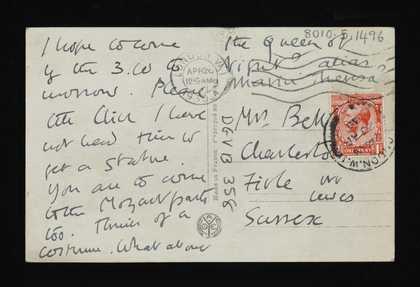 8010.5.1496
I hope to come
by the 3.20 to
morrow. Please
tell Clive I have
not had time to
get a statue.
You are to come
to the Mozart party
too. Think of a
costume. What about
the Queen of
Night alias
Mrs Bell
Charleston
Firle nr
Lewes
Sussex
DGVB 356
Made in France